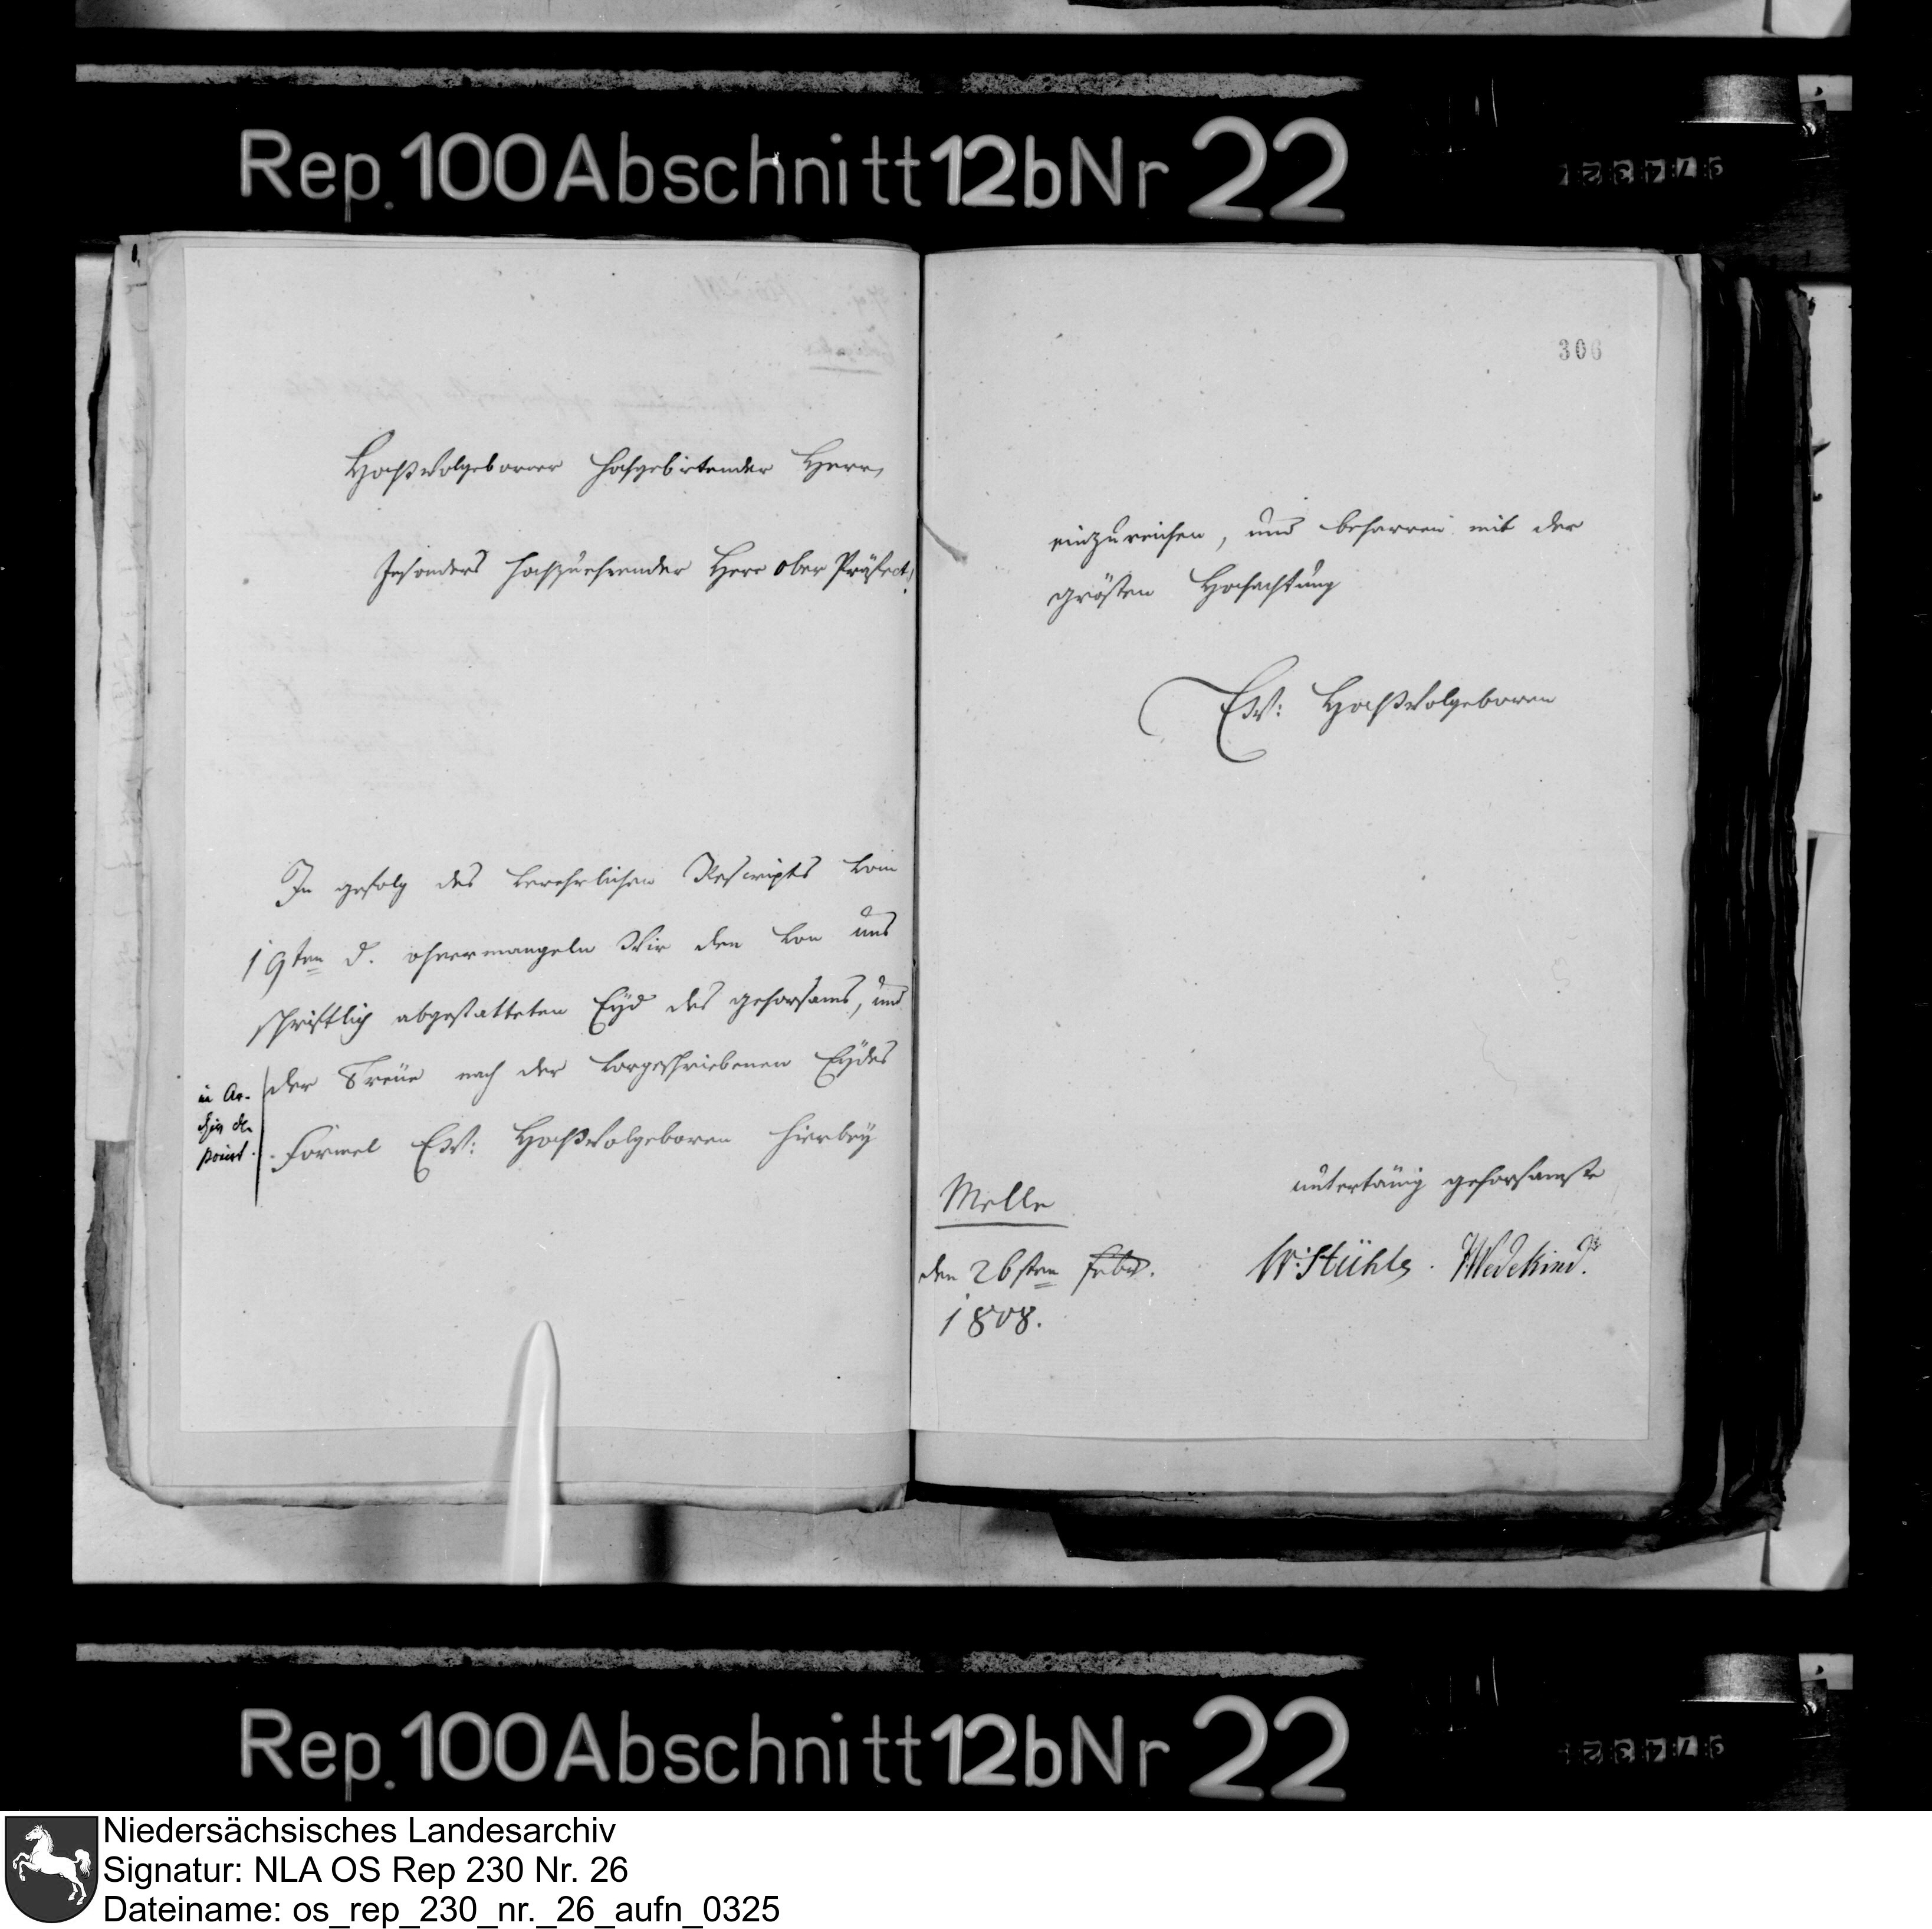 Rep. 100 Abschnitt 12b Nr 22
306
Hochwolgeborner hochgebietender Herr,
Insonders hochzuehrender Herr ober Präfect!
In gefolg des verehrlichen Rescripts vom
19ten d. ohnermangeln Wir den von uns
schriftlich abgestatteten Eyd des gehorsams, und
der Treüe nach der vorgeschriebenen Eydes
Formel Ew: Hochwolgeboren hierbey
einzureichen, und beharren mit der
grösten Hochachtung
Ew: Hochwolgeboren
untertänig gehorsamste
Melle
den 26sten Febr.
1808.
W: Stühle. Wedekind.
Rep. 100 Abschnitt 12b Nr 22
Niedersächsisches Landesarchiv
Signatur: NLA OS Rep 230 Nr. 26
Dateiname: os_rep_230_nr._26_aufn_0325